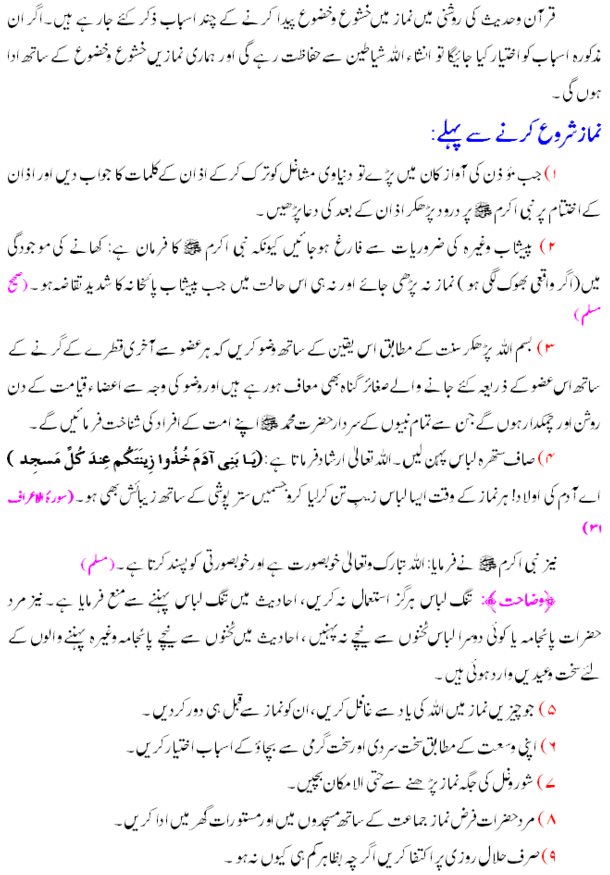 قرآن وحدیث کی روشنی میں نماز میں خشوع وخضوع پیدا کرنے کے چند اسباب ذکر کئے جارہے ہیں۔ اگر ان
مذکورہ اسباب کو اختیار کیا جائیگا تو انشاء اللہ شیاطین سے حفاظت رہے گی اور ہماری نمازیں خشوع وخضوع کے ساتھ ادا
ہوں گی ۔
نماز شروع کرنے سے پہلے:
۱) جب مؤذن کی آواز کان میں پڑے تو دنیاوی مشاغل کو ترک کرکے اذان کے کلمات کا جواب دیں اور اذان
کے اختتام پر نبی اکرم ﷺ پر درود پڑھکر اذان کے بعد کی دعا پڑھیں۔
۲) پیشاب وغیرہ کی ضروریات سے فارغ ہوجائیں کیونکہ نبی اکرم ﷺ کا فرمان ہے: کھانے کی موجودگی
میں (اگر واقعی بھوک لگی ہو) نماز نہ پڑھی جائے اور نہ ہی اس حالت میں جب پیشاب پائخانہ کا شدید تقاضہ ہو۔ (صحیح
مسلم)
۳) بسم اللہ پڑھکر سنت کے مطابق اس یقین کے ساتھ وضو کریں کہ ہر عضو سے آخری قطرے کے گرنے کے
ساتھ اس عضو کے ذریعہ کئے جانے والے صغائر گناہ بھی معاف ہورہے ہیں اور وضو کی وجہ سے اعضاء قیامت کے دن
روشن اور چمکدار ہوں گے جن سے تمام نبیوں کے سردار حضرت محمد ﷺ اپنے امت کے افراد کی شناخت فرمائیں گے۔
۴) صاف ستھرہ لباس پہن لیں۔ اللہ تعالیٰ ارشاد فرماتا ہے: (یَا بَنِی آدَمَ خُذُوا زِینَتَکُم عِندَ کُلِّ مَسجِد )
اے آدم کی اولاد! ہر نماز کے وقت ایسا لباس زیبِ تن کرلیا کرو جسمیں ستر پوشی کے ساتھ زیبائش بھی ہو۔ (سورۂ الاعراف
۳۱)
نیز نبی اکرم ﷺ نے فرمایا: اللہ تبارک وتعالیٰ خوبصورت ہے اور خوبصورتی کو پسند کرتا ہے۔ (مسلم)
﴿وضاحت﴾: تنگ لباس ہرگز استعمال نہ کریں، احادیث میں تنگ لباس پہننے سے منع فرمایا ہے۔ نیز مرد
حضرات پائجامہ یا کوئی دوسرا لباس ٹخنوں سے نیچے نہ پہنیں، احادیث میں ٹخنوں سے نیچے پائجامہ وغیرہ پہننے والوں کے
لئے سخت وعیدیں وارد ہوئی ہیں ۔
۵) جو چیزیں نماز میں اللہ کی یاد سے غافل کریں، ان کو نماز سے قبل ہی دور کردیں ۔
۶) اپنی وسعت کے مطابق سخت سردی اور سخت گرمی سے بچاؤ کے اسباب اختیار کریں۔
۷) شوروغل کی جگہ نماز پڑھنے سے حتی الامکان بچیں۔
۸) مرد حضرات فرض نماز جماعت کے ساتھ مسجدوں میں اور مستورات گھر میں ادا کریں ۔
۹) صرف حلال روزی پر اکتفا کریں اگرچہ بظاہر کم ہی کیوں نہ ہو ۔